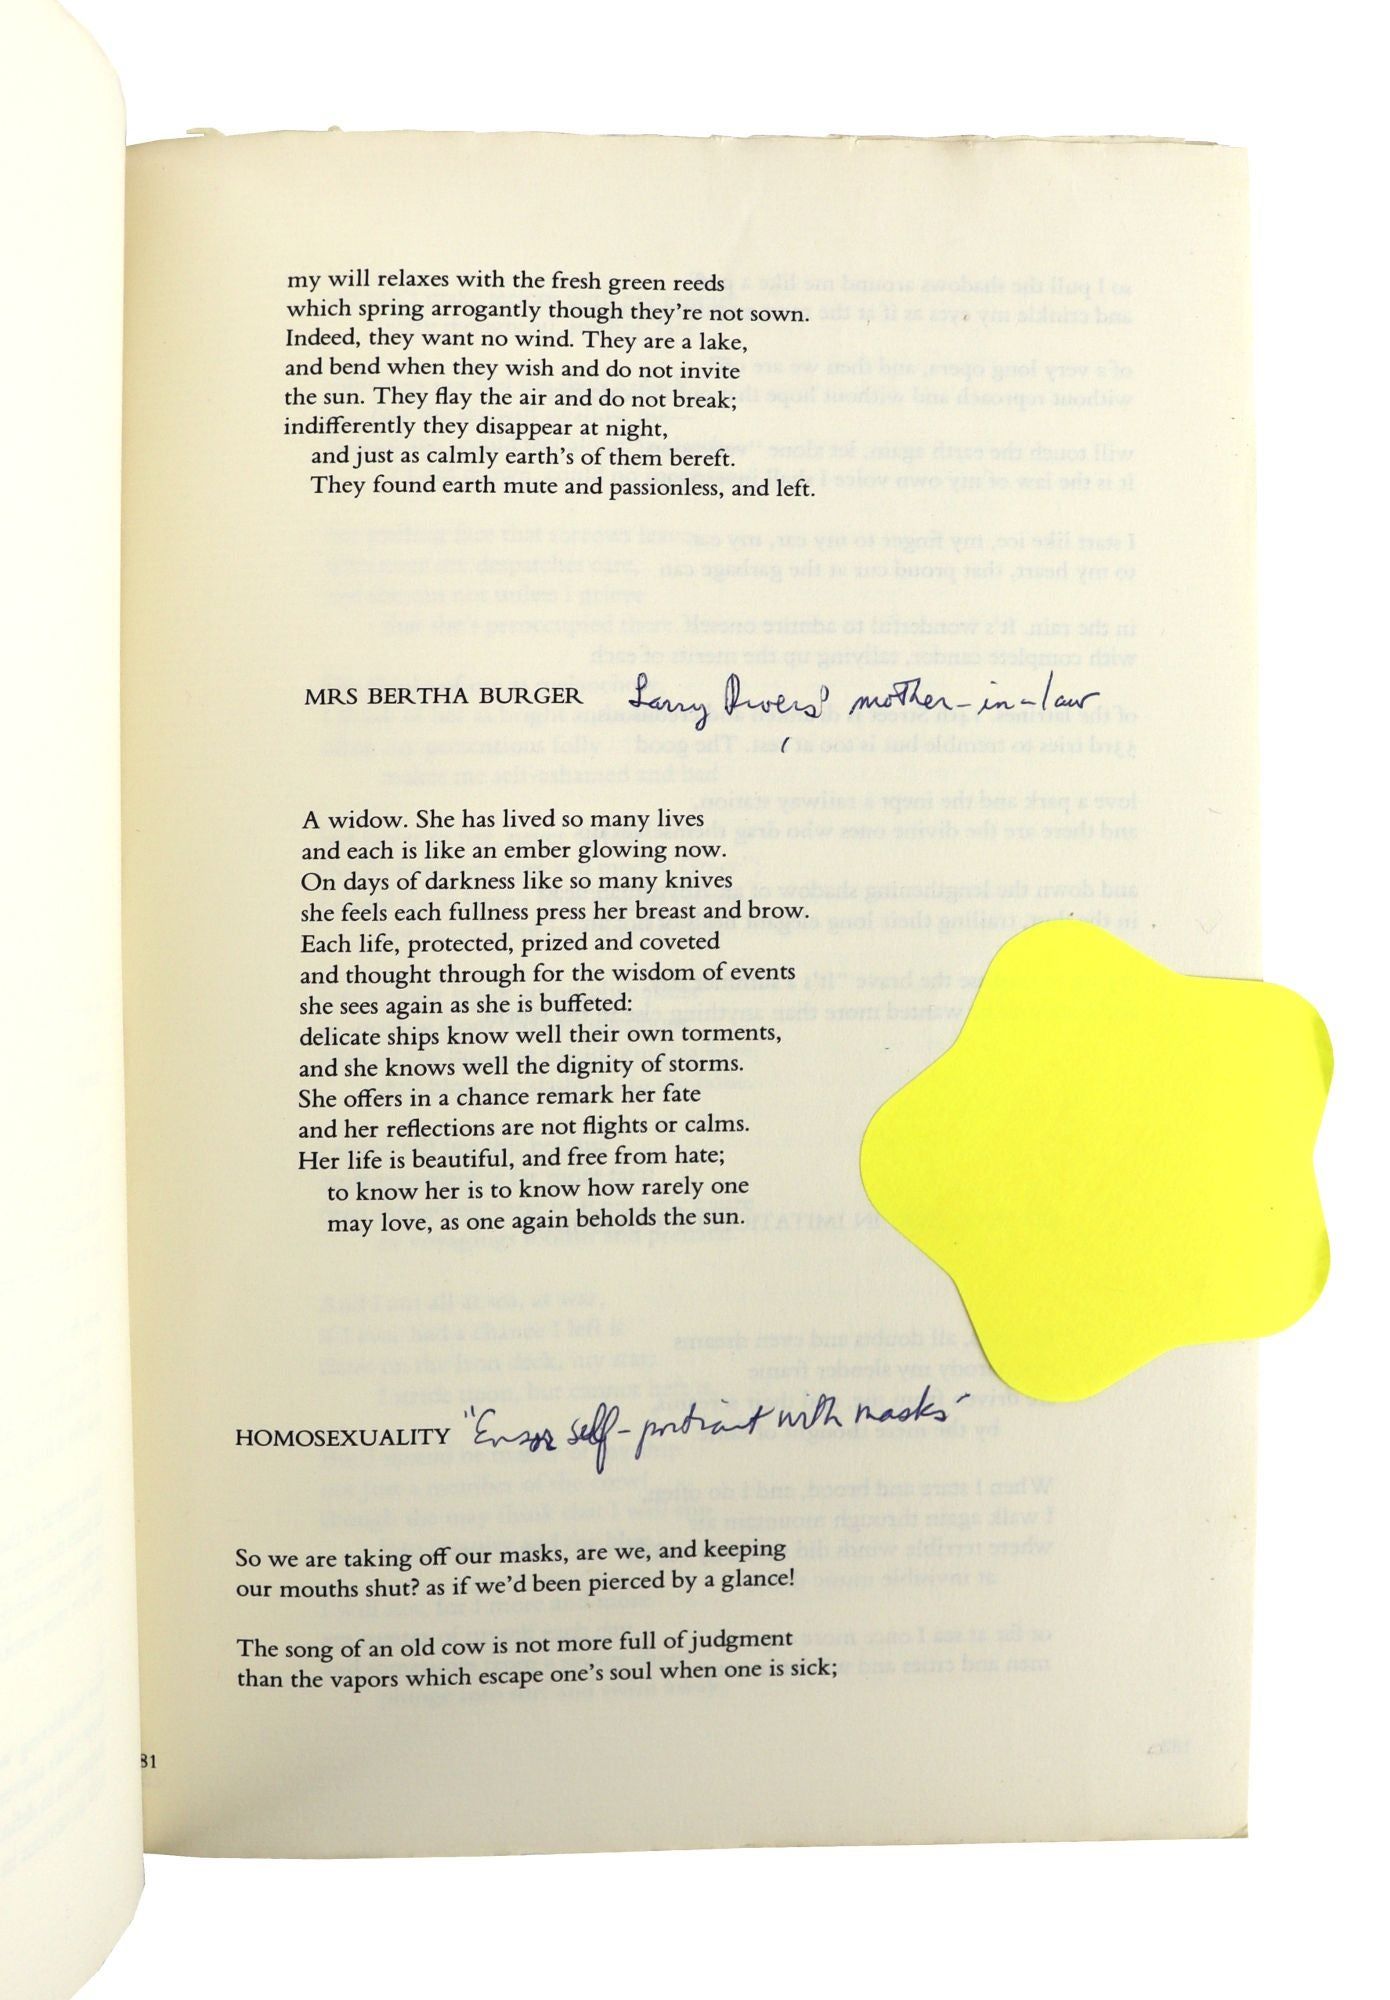 my will relaxes with the fresh green reeds
which spring arrogantly though they're not sown.
Indeed, they want no wind. They are a lake,
and bend when they wish and do not invite
the sun. They flay the air and do not break;
indifferently they disappear at night,
and just as calmly earth's of them bereft.
They found earth mute and passionless, and left.
MRS BERTHA BURGER Larry Rivers' mother-in-law
A widow. She has lived so many lives
and each is like an ember glowing now.
On days of darkness like so many knives
she feels each fullness press her breast and brow.
Each life, protected, prized and coveted
and thought through for the wisdom of events
she sees again as she is buffeted:
delicate ships know well their own torments,
and she knows well the dignity of storms.
She offers in a chance remark her fate
and her reflections are not flights or calms.
Her life is beautiful, and free from hate;
to know her is to know how rarely one
may love, as one again beholds the sun.
HOMOSEXUALITY "Ensor self-portrait with masks"
So we are taking off our masks, are we, and keeping
our mouths shut? as if we'd been pierced by a glance!
The song of an old cow is not more full of judgment
than the vapors which escape one's soul when one is sick;
81